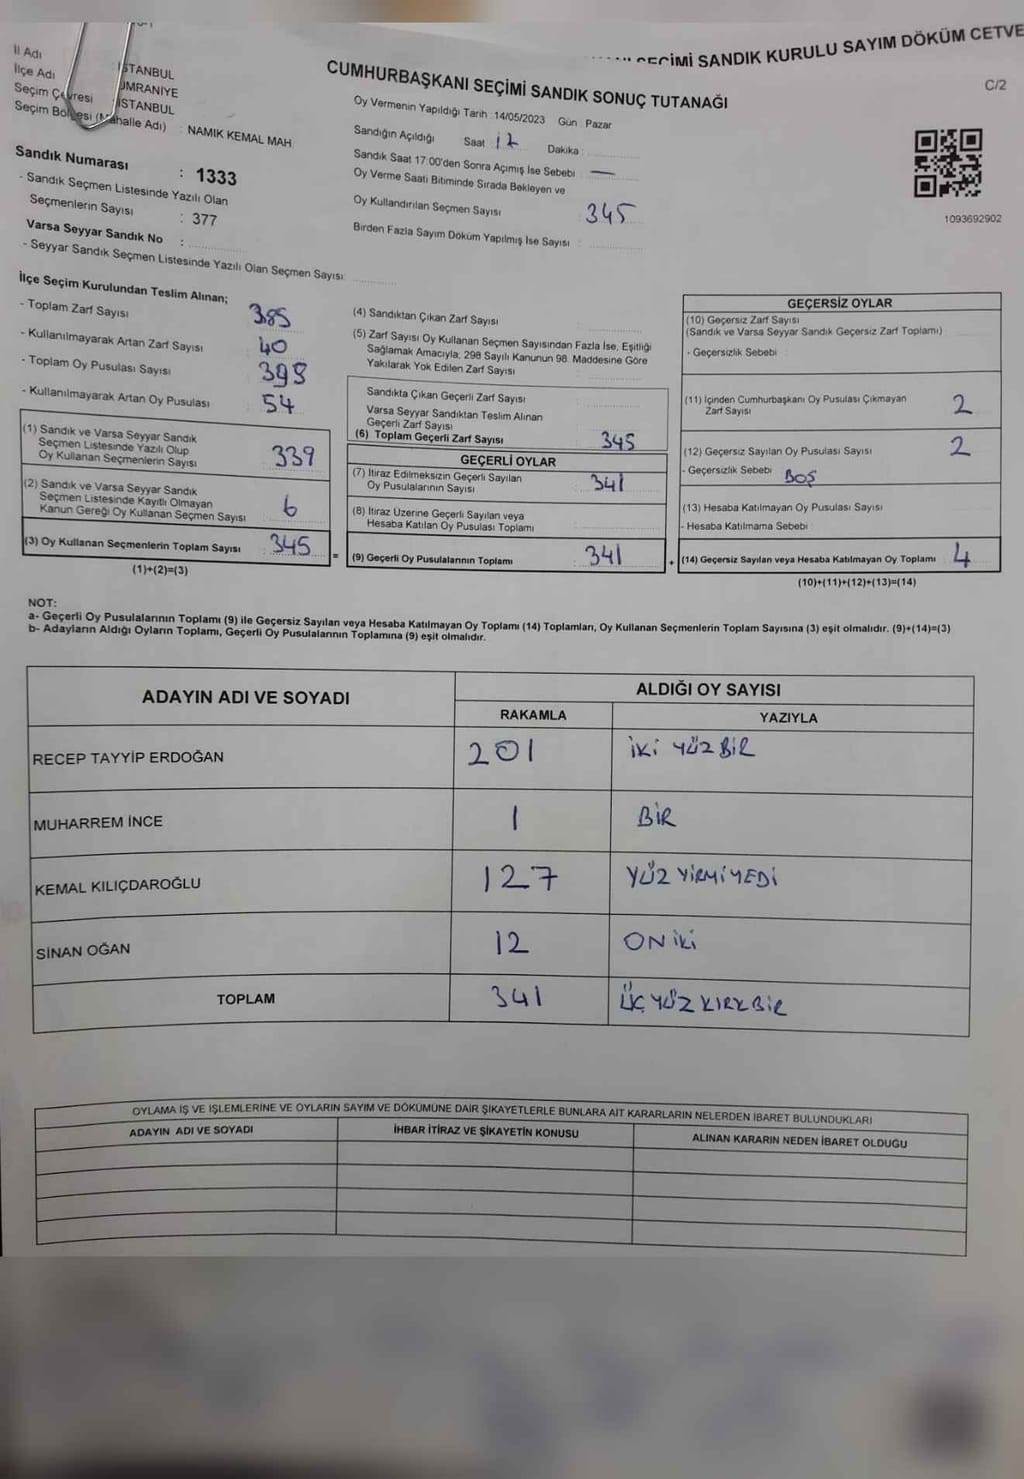 SEÇİMİ SANDIK KURULU SAYIM DÖKÜM CETVE
C/2
İl Adı : İSTANBUL
İlçe Adı ÜMRANİYE
Seçim Çevresi İSTANBUL
Seçim Bölgesi (Mahalle Adı) : NAMIK KEMAL MAH.
Sandık Numarası : 1333
- Sandık Seçmen Listesinde Yazılı Olan
Seçmenlerin Sayısı : 377
Varsa Seyyar Sandık No :
- Seyyar Sandık Seçmen Listesinde Yazılı Olan Seçmen Sayısı:
CUMHURBAŞKANI SEÇİMİ SANDIK SONUÇ TUTANAĞI
Oy Vermenin Yapıldığı Tarih : 14/05/2023 Gün : Pazar
Sandığın Açıldığı Saat 17 Dakika :
Sandık Saat 17:00'den Sonra Açımış İse Sebebi : —
Oy Verme Saati Bitiminde Sırada Bekleyen ve
Oy Kullandırılan Seçmen Sayısı 345
Birden Fazla Sayım Döküm Yapılmış İse Sayısı :
1093692902
İlçe Seçim Kurulundan Teslim Alınan;
- Toplam Zarf Sayısı 385
- Kullanılmayarak Artan Zarf Sayısı 40
- Toplam Oy Pusulası Sayısı
- Kullanılmayarak Artan Oy Pusulası 54
(1) Sandık ve Varsa Seyyar Sandık
Seçmen Listesinde Yazılı Olup
Oy Kullanan Seçmenlerin Sayısı 339
(2) Sandık ve Varsa Seyyar Sandık
Seçmen Listesinde Kayıtlı Olmayan
Kanun Gereği Oy Kullanan Seçmen Sayısı 6
(3) Oy Kullanan Seçmenlerin Toplam Sayısı : 345 =
(1)+(2)=(3)
(4) Sandıktan Çıkan Zarf Sayısı :
(5) Zarf Sayısı Oy Kullanan Seçmen Sayısından Fazla İse, Eşitliği
Sağlamak Amacıyla, 298 Sayılı Kanunun 98. Maddesine Göre
Yakılarak Yok Edilen Zarf Sayısı
Sandıkta Çıkan Geçerli Zarf Sayısı
Varsa Seyyar Sandıktan Teslim Alınan
Geçerli Zarf Sayısı
(6) Toplam Geçerli Zarf Sayısı 345
GEÇERLİ OYLAR
(7) İtiraz Edilmeksizin Geçerli Sayılan
Oy Pusulalarının Sayısı 341
(8) İtiraz Üzerine Geçerli Sayılan veya
Hesaba Katılan Oy Pusulası Toplamı
(9) Geçerli Oy Pusulalarının Toplamı : 341 +
GEÇERSİZ OYLAR
(10) Geçersiz Zarf Sayısı
(Sandık ve Varsa Seyyar Sandık Geçersiz Zarf Toplamı)
- Geçersizlik Sebebi :
(11) İçinden Cumhurbaşkanı Oy Pusulası Çıkmayan
Zarf Sayısı 2
(12) Geçersiz Sayılan Oy Pusulası Sayısı 2
- Geçersizlik Sebebi : BOŞ
(13) Hesaba Katılmayan Oy Pusulası Sayısı
- Hesaba Katılmama Sebebi :
(14) Geçersiz Sayılan veya Hesaba Katılmayan Oy Toplamı 4
(10)+(11)+(12)+(13)=(14)
NOT:
a- Geçerli Oy Pusulalarının Toplamı (9) ile Geçersiz Sayılan veya Hesaba Katılmayan Oy Toplamı (14) Toplamları, Oy Kullanan Seçmenlerin Toplam Sayısına (3) eşit olmalıdır. (9)+(14)=(3)
b- Adayların Aldığı Oyların Toplamı, Geçerli Oy Pusulalarının Toplamına (9) eşit olmalıdır.
ADAYIN ADI VE SOYADI ALDIĞI OY SAYISI
RAKAMLA YAZIYLA
RECEP TAYYİP ERDOĞAN 201 İKİ YÜZ BİR
MUHARREM İNCE 1 BİR
KEMAL KILIÇDAROĞLU 127 YÜZ YİRMİ YEDİ
SİNAN OĞAN 12 ON İKİ
TOPLAM 341 ÜÇ YÜZ KIRK BİR
OYLAMA İŞ VE İŞLEMLERİNE VE OYLARIN SAYIM VE DÖKÜMÜNE DAİR ŞİKAYETLERLE BUNLARA AİT KARARLARIN NELERDEN İBARET BULUNDUKLARI
ADAYIN ADI VE SOYADI İHBAR İTİRAZ VE ŞİKAYETİN KONUSU ALINAN KARARIN NEDEN İBARET OLDUĞU